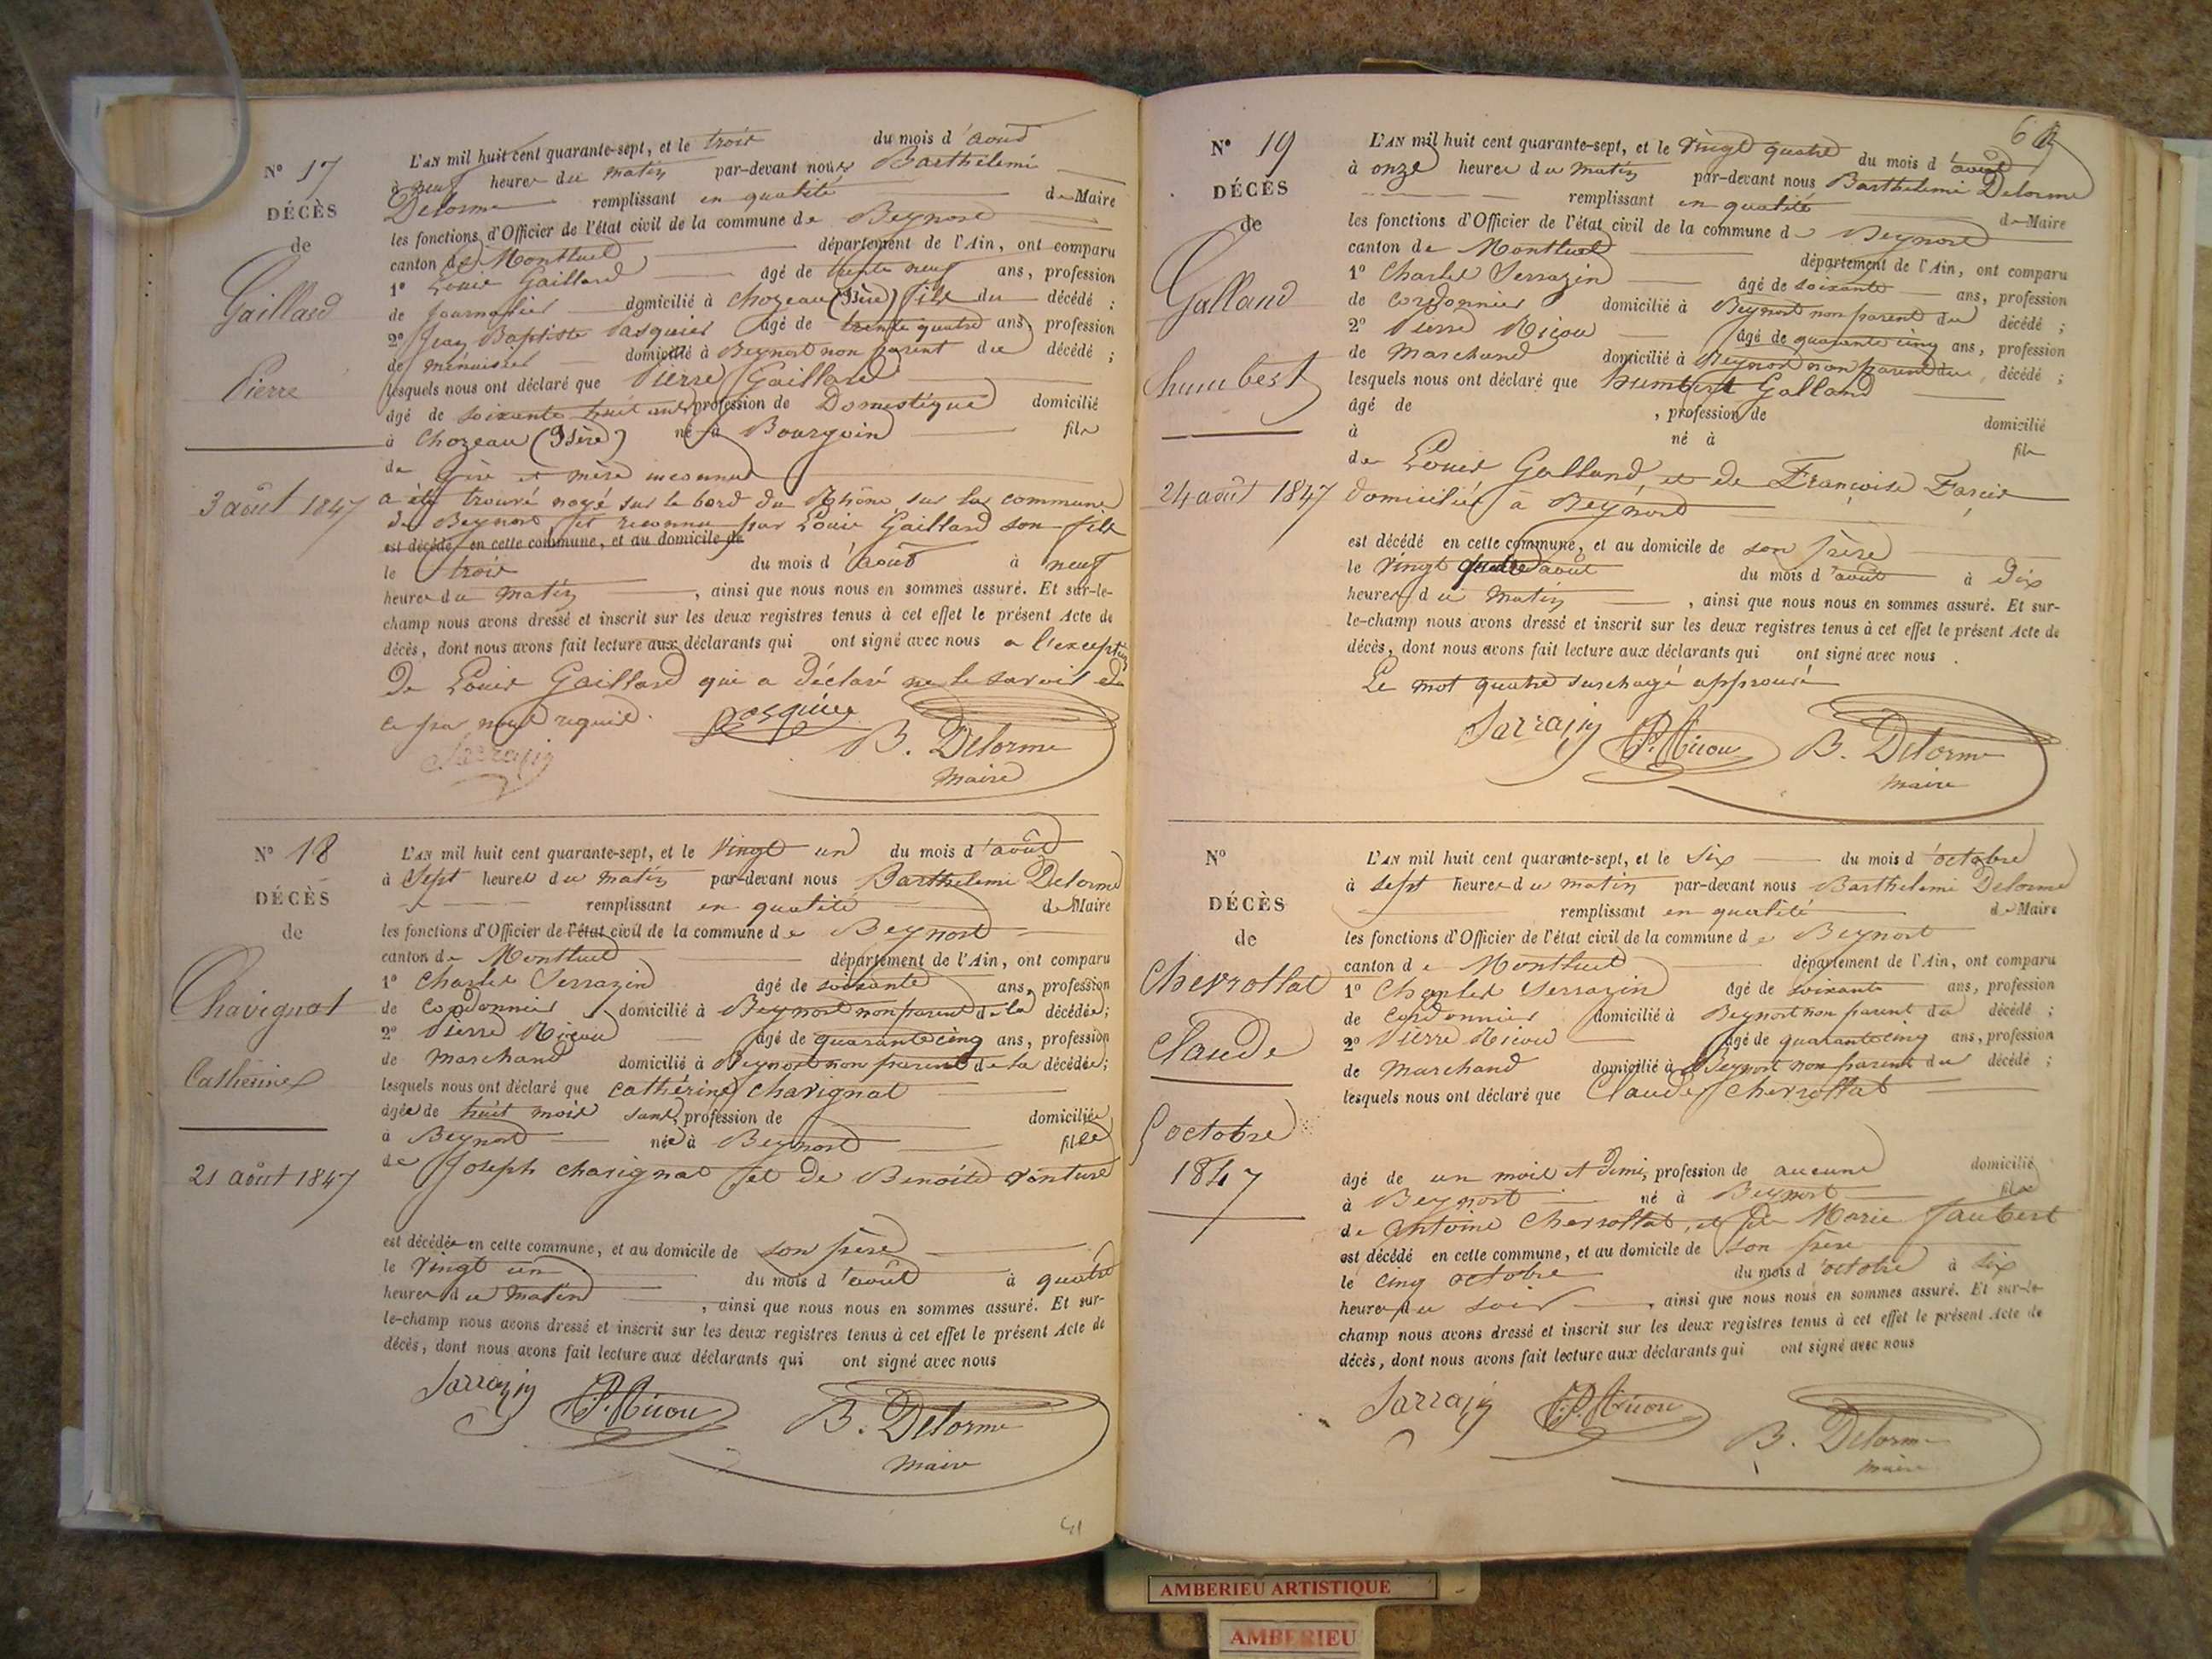 N° 17
DÉCÈS
de
Gaillard
Pierre
3 août 1847
L'AN mil huit cent quarante-sept, et le trois du mois d'août
à neuf heures du matin par-devant nous Barthélemi
Delorme remplissant en qualité de Maire
les fonctions d'Officier de l'état civil de la commune de Beynost
canton de Montluel département de l'Ain, ont comparu
1° Louis Gaillard âgé de trente neuf ans, profession
de journalier domicilié à Chozeau (Isère) fils du décédé ;
2° Jean Baptiste Pasquier âgé de trente quatre ans, profession
de menuisier domicilié à Beynost non parent du décédé ;
lesquels nous ont déclaré que Pierre Gaillard
âgé de soixante huit ans profession de Domestique domicilié
à Chozeau (Isère) né à Bourgoin fils
de père et mère inconnus
a été trouvé noyé sur le bord du Rhône sur la commune
de Beynost, et reconnu par Louis Gaillard son fils
est décédé en cette commune, et au domicile de
le trois du mois d'août à neuf
heures du matin, ainsi que nous nous en sommes assuré. Et sur-le-
champ nous avons dressé et inscrit sur les deux registres tenus à cet effet le présent Acte de
décès, dont nous avons fait lecture aux déclarants qui ont signé avec nous a l'exception
De Louis Gaillard qui a déclaré ne le savoir de
ce par nous requis.
Pasquier
Sarrazin
B. Delorme
maire
N° 18
DÉCÈS
de
Chavignat
Catherine
21 août 1847
L'AN mil huit cent quarante-sept, et le vingt un du mois d'août
à sept heures du matin par-devant nous Barthelemi Delorme
remplissant en qualité de Maire
les fonctions d'Officier de l'état civil de la commune de Beynost
canton de Montluel département de l'Ain, ont comparu
1° Charles Serrazin âgé de soixante ans, profession
de cordonnier domicilié à Beynost non parent de la décédée ;
2° Pierre Nicou âgé de quarante cinq ans, profession
de marchand domicilié à Beynost non parent de la décédée ;
lesquels nous ont déclaré que Catherine Chavignat
âgée de huit mois sans, profession de domiciliée
à Beynost née à Beynost fille
de Joseph Chavignat et de Benoite
est décédée en cette commune, et au domicile de son père
le vingt un du mois d'août à quatre
heures du matin, ainsi que nous nous en sommes assuré. Et sur-
le-champ nous avons dressé et inscrit sur les deux registres tenus à cet effet le présent Acte de
décès, dont nous avons fait lecture aux déclarants qui ont signé avec nous
Sarrazin P. Nicou B. Delorme
maire
N° 19
DÉCÈS
de
Galland
humbert
24 août 1847
L'AN mil huit cent quarante-sept, et le vingt quatre du mois d'août
à onze heures du matin par-devant nous Barthelemi Delorme
remplissant en qualité de Maire
les fonctions d'Officier de l'état civil de la commune de Beynost
canton de Montluel département de l'Ain, ont comparu
1° Charles Serrazin âgé de soixante ans, profession
de cordonnier domicilié à Beynost non parent du décédé ;
2° Pierre Nicou âgé de quarante cinq ans, profession
de marchand domicilié à Beynost non parent du décédé ;
lesquels nous ont déclaré que humbert Galland
âgé de , profession de domicilié
à né à fils
de Louis Galland, et de Françoise
domiciliés à Beynost
est décédé en cette commune, et au domicile de son père
le vingt quatre août du mois d'août à dix
heures du matin, ainsi que nous nous en sommes assuré. Et sur-
le-champ nous avons dressé et inscrit sur les deux registres tenus à cet effet le présent Acte de
décès, dont nous avons fait lecture aux déclarants qui ont signé avec nous.
Le mot quatre surchagé approuvé
Sarrazin P. Nicou B. Delorme
maire
N°
DÉCÈS
de
Chevrottat
Claude
5 octobre
1847
L'AN mil huit cent quarante-sept, et le six du mois d'octobre
à sept heures du matin par-devant nous Barthelemi Delorme
remplissant en qualité de Maire
les fonctions d'Officier de l'état civil de la commune de Beynost
canton de Montluel département de l'Ain, ont comparu
1° Charles Serrazin âgé de soixante ans, profession
de cordonnier domicilié à Beynost non parent du décédé ;
2° Pierre Nicou âgé de quarante cinq ans, profession
de marchand domicilié à Beynost non parent du décédé ;
lesquels nous ont déclaré que Claude Chevrottat
âgé de un mois et demi, profession de aucune domicilié
à Beynost né à Beynost fils
de Antoine Chevrottat, et de Marie Jaubert
est décédé en cette commune, et au domicile de son père
le cinq octobre du mois d'octobre à six
heures du soir, ainsi que nous nous en sommes assuré. Et sur-le-
champ nous avons dressé et inscrit sur les deux registres tenus à cet effet le présent Acte de
décès, dont nous avons fait lecture aux déclarants qui ont signé avec nous
Sarrazin P. Nicou
B. Delorme
maire
AMBERIEU ARTISTIQUE
AMBERIEU